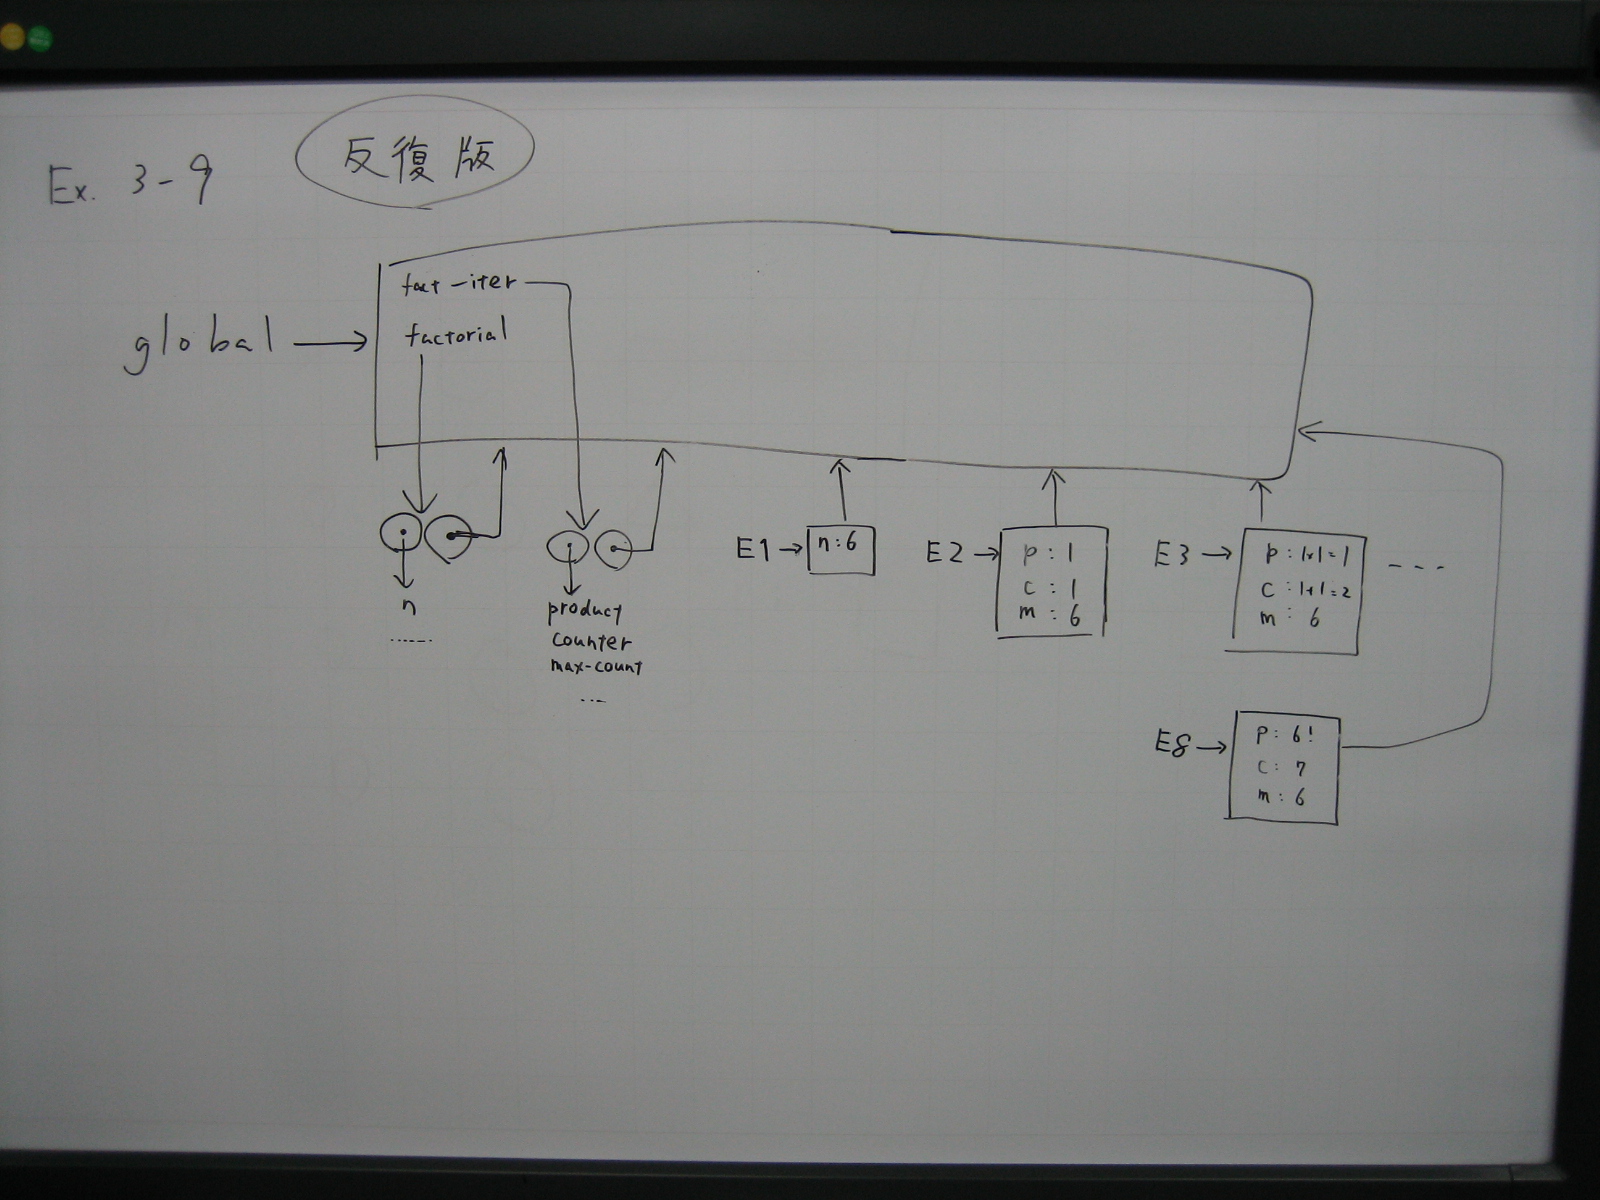 Ex. 3-9
反復版
global
fact-iter
factorial
n
......
product
counter
max-count
...
E1
n:6
E2
p:1
c:1
m:6
E3
p:1*1=1
c:1+1=2
m:6
----
E8
p:6!
c:7
m:6